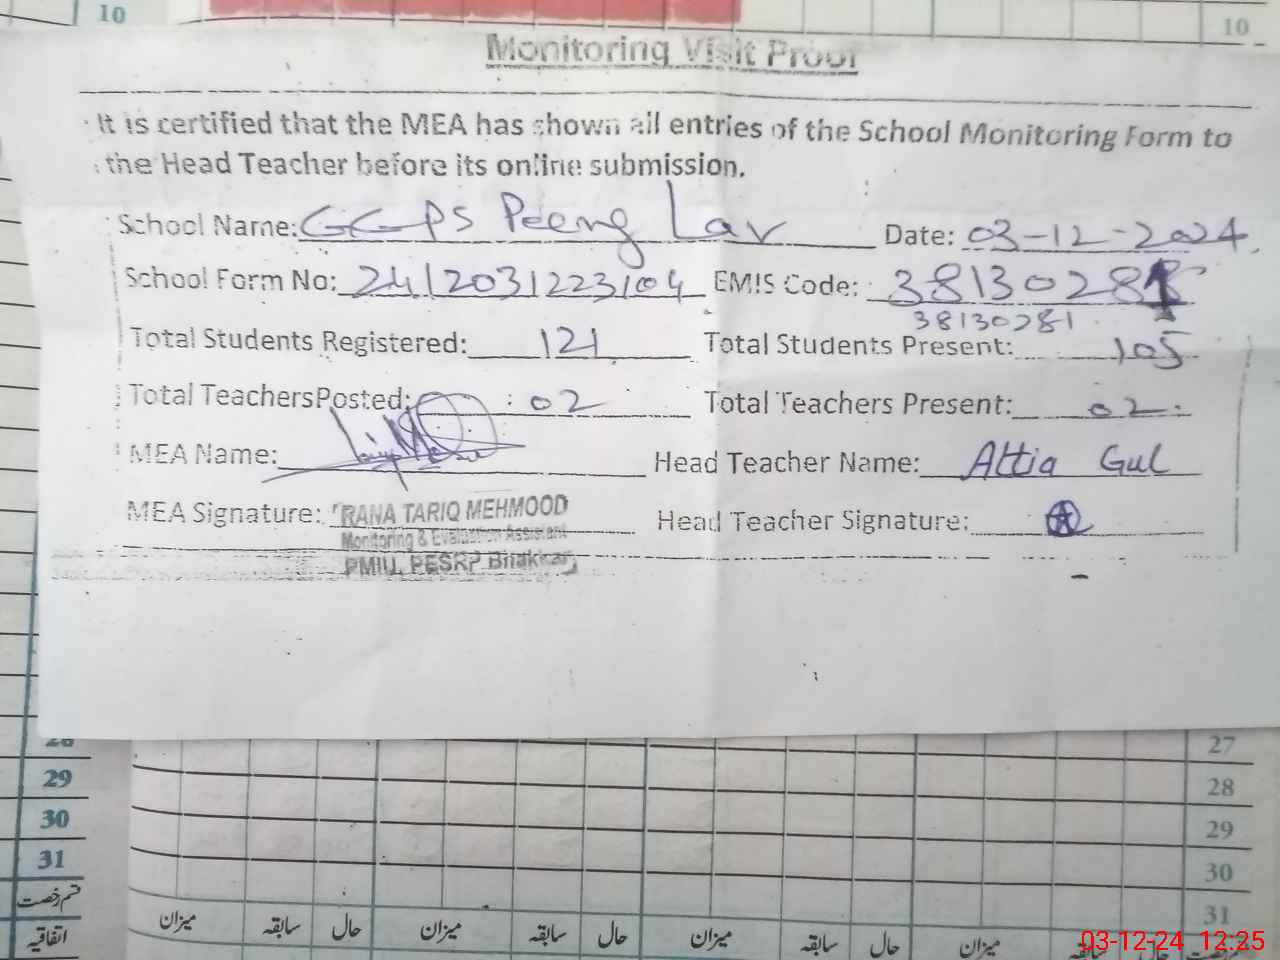 10 10
Monitoring Visit Proof
It is certified that the MEA has shown all entries of the School Monitoring Form to
the Head Teacher before its online submission.
School Name: GGPS Peeng Lar Date: 03-12-2024
School Form No: 2412031223104 EMIS Code: 38130281
38130281
Total Students Registered: 121 Total Students Present: 105
Total TeachersPosted: 02 Total Teachers Present: 02
MEA Name: Head Teacher Name: Attia Gul
MEA Signature: RANA TARIQ MEHMOOD Head Teacher Signature:
Monitoring & Evaluation Assistant
PMIU, PESRP Bhakkar
28 27
29 28
30 29
31 30
قسم رخصت 31
اتفاقیہ میزان سابقہ حال میزان سابقہ حال میزان سابقہ حال میزان سابقہ حال
03-12-24 12:25